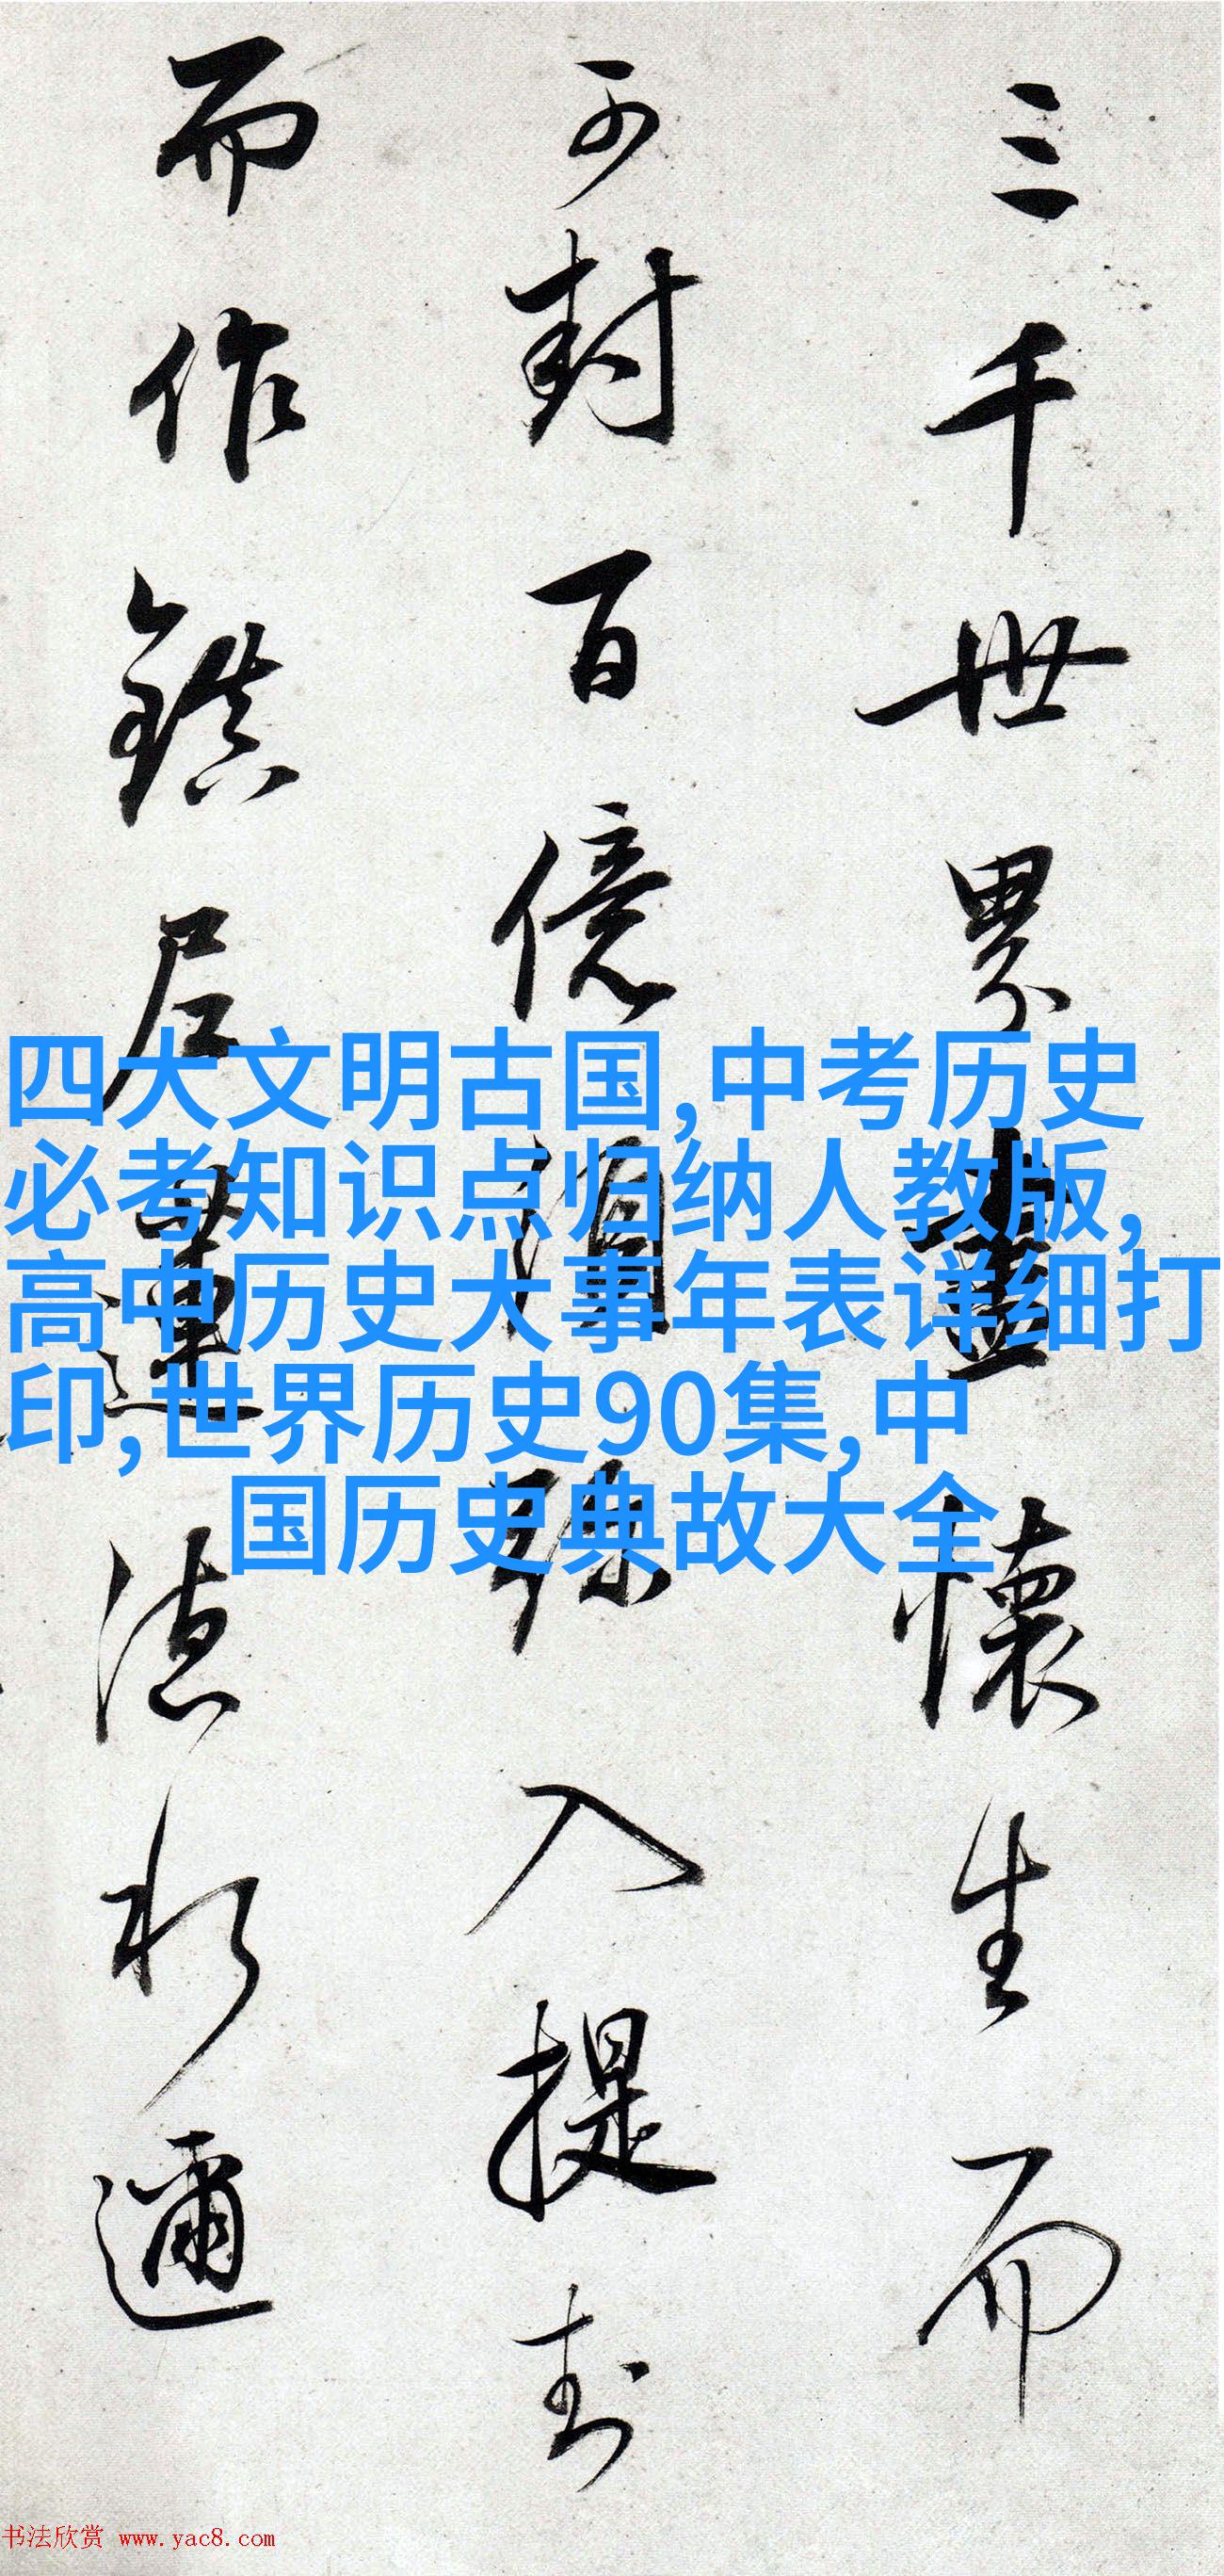 三千世界盡懷生而
可封百億須弥入提封
而作鎮居運濕於邇
四大文明古国,中考历史
必考知识点归纳人教版,
高中历史大事年表详细打
印,世界历史90集,中
国历史典故大全
书法欣赏 www.yac8.com